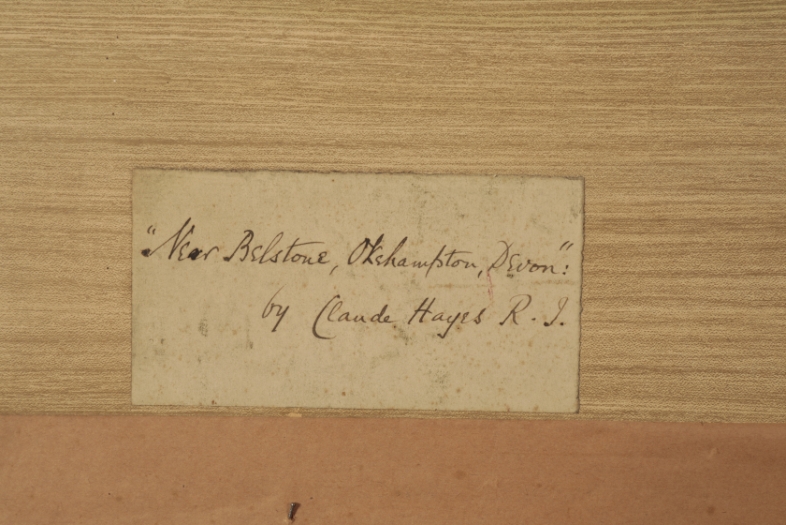 "Near Belstone, Okehampton, Devon":
by Claude Hayes R. I.